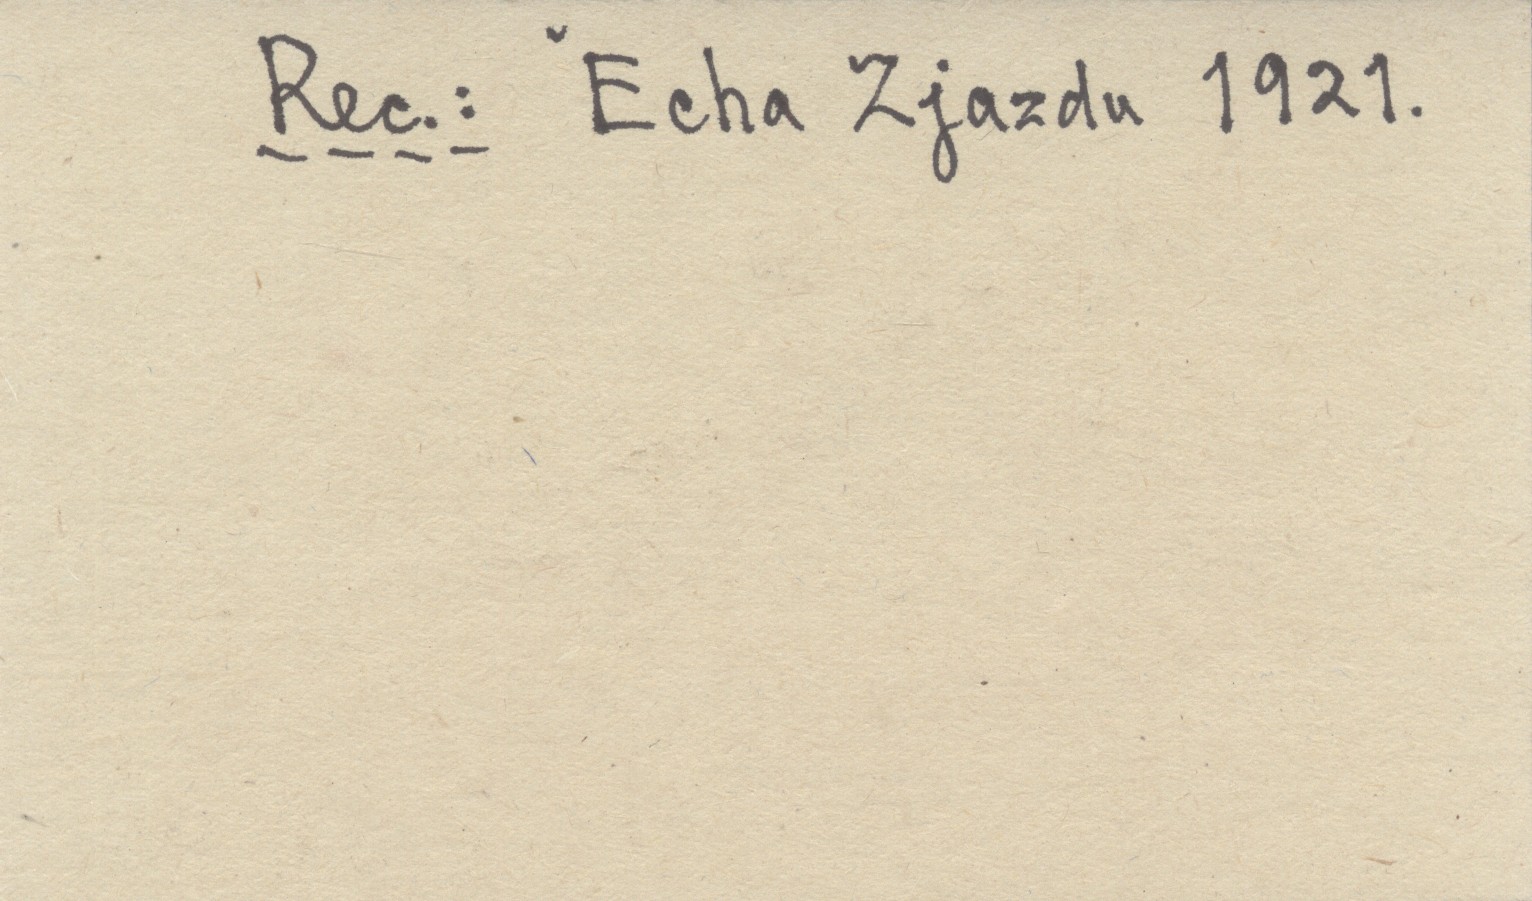 Rec.: ˇEcha Zjazdu 1921.